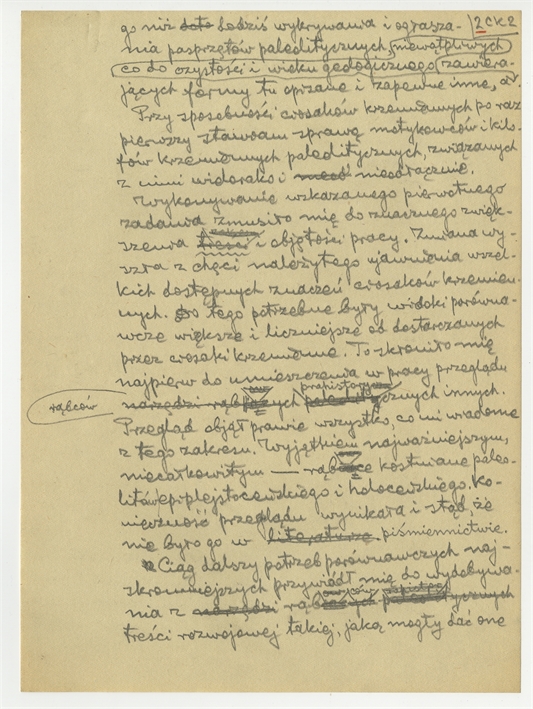 go niż do Łodziś wykrywania i ogłasza- 2 CK 2
nia pasprzętów paleolitycznych, niewątpliwych
co do czystości i wieku geologicznego, zawiera-
jących formy tu opisane i zapewne inne,
Przy sposobności ciosaków krzemiennych po raz
pierwszy stawiam sprawę motykowców i kilo-
fów krzemiennych paleolitycznych, związanych
z nimi widorako i nieodłącznie.
Wykonywanie wskazanego pierwotnego
zadania zmusiło mię do znacznego zwięk-
szenia treści i objętości pracy. Zmiana wy-
szła z chęci należytego ujawnienia wszel-
kich dostępnych znaczeń ciosaków krzemien-
nych. Do tego potrzebne były widoki porówna-
wcze większe i liczniejsze od dostarczanych
przez ciosaki krzemienne. To skłoniło mię
najpierw do umieszczenia w pracy przeglądu
prahistory
rąbców narzędzi rąb ych paleolitycznych innych.
Przegląd objął prawie wszystko, co mi wiadome
z tego zakresu. Wyjątkiem najważniejszym,
niecałkowitym — rąbce kostniane paleo-
litów epiplejstoceńskiego i holoceńskiego. Ko-
nieczność przeglądu wynikała i stąd, że
nie było go w literaturze piśmiennictwie.
Ciąg dalszy potrzeb porównawczych naj-
skromniejszych przywiódł mię do wydobywa-
nia z narzędzi rąb ycznych
treści rozwojowej takiej, jaką mogły dać one